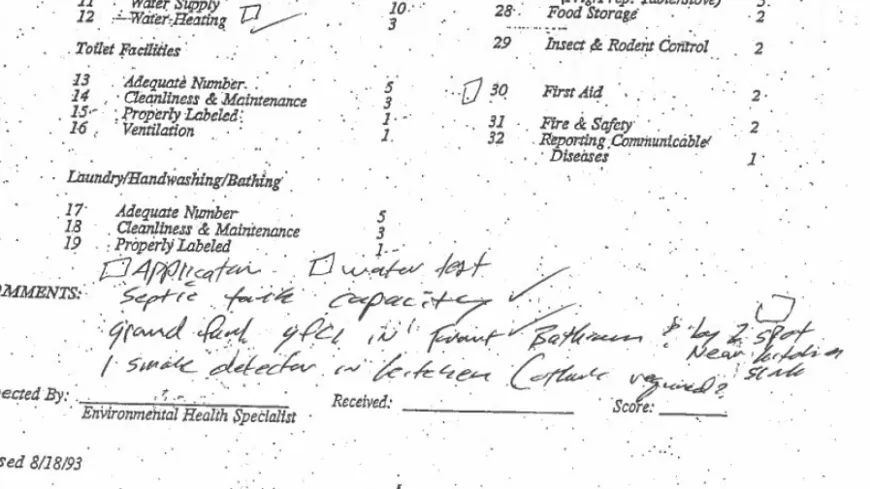 11 Water Supply 10
12 Water Heating 3
Toilet Facilities
13 Adequate Number 5
14 Cleanliness & Maintenance 3
15 Properly Labeled 1
16 Ventilation 1
Laundry/Handwashing/Bathing
17 Adequate Number 5
18 Cleanliness & Maintenance 3
19 Properly Labeled 1
28 Food Storage 2
29 Insect & Rodent Control 2
30 First Aid 2
31 Fire & Safety 2
32 Reporting Communicable
Diseases 1
Application water test
OMMENTS: Septic tank capacity ✓
ground fault gfci in Bathroom & by 2 spot
Near kitchen
1 smoke detector in kitchen required? sink
ected By: Received: Score:
Environmental Health Specialist
sed 8/18/93